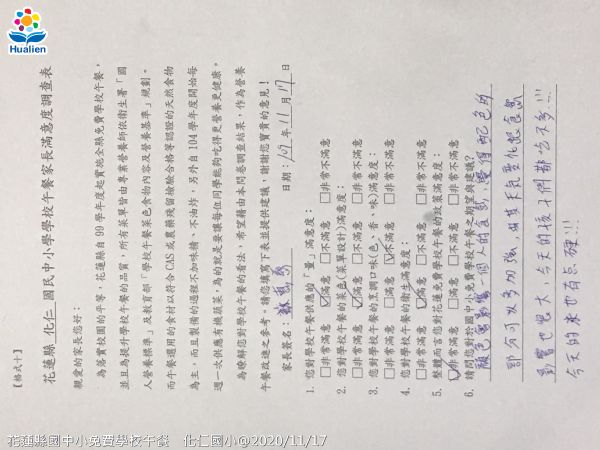 Hualien
【格式十】
花蓮縣 化仁 國民中小學學校午餐家長滿意度調查表
親愛的家長您好：
為落實校園的平等，花蓮縣自 99 學年度起實施全縣免費學校午餐，
並且為提升學校午餐的品質，所有菜單皆由專業營養師依衛生署「國
人營養標準」及教育部「學校午餐菜色食物內容及營養基準」規劃。
而午餐選用的食材以符合 CAS 或農藥殘留檢驗合格等認證的天然食物
為主，而且製備的過程不加味精、不油炸，另外自 104 學年度開始每
週一次供應有機蔬菜，為的就是要讓每位同學能夠吃得更營養更健康。
為瞭解您對學校午餐的看法，希望藉由本問卷調查結果，作為營養
午餐改進之參考。請您填寫下表並提供建議，謝謝您寶貴的意見！
家長簽名： 日期：109年11月17日
1. 您對學校午餐供應的「量」滿意度：
□非常滿意 ☑滿意 □不滿意 □非常不滿意
2. 您對學校午餐的菜色(菜單設計)滿意度：
□非常滿意 ☑滿意 □不滿意 □非常不滿意
3. 您對學校午餐的烹調口味(色、香、味)滿意度：
□非常滿意 □滿意 ☑不滿意 □非常不滿意
4. 您對學校午餐的衛生滿意度：
□非常滿意 ☑滿意 □不滿意 □非常不滿意
5. 整體而言您對花蓮縣免費學校午餐的政策滿意度：
☑非常滿意 □滿意 □不滿意 □非常不滿意
6. 請問您對於國中小免費學校午餐之期望與建議？
顏色會影響一個人的食慾，覺得配色的
部分可以多加強，尤其天氣變化跟食慾
影響也很大，今天的孩子們都吃不多!!!
今天的米也有点硬!!!
花蓮縣國中小免費學校午餐 化仁國小@2020/11/17